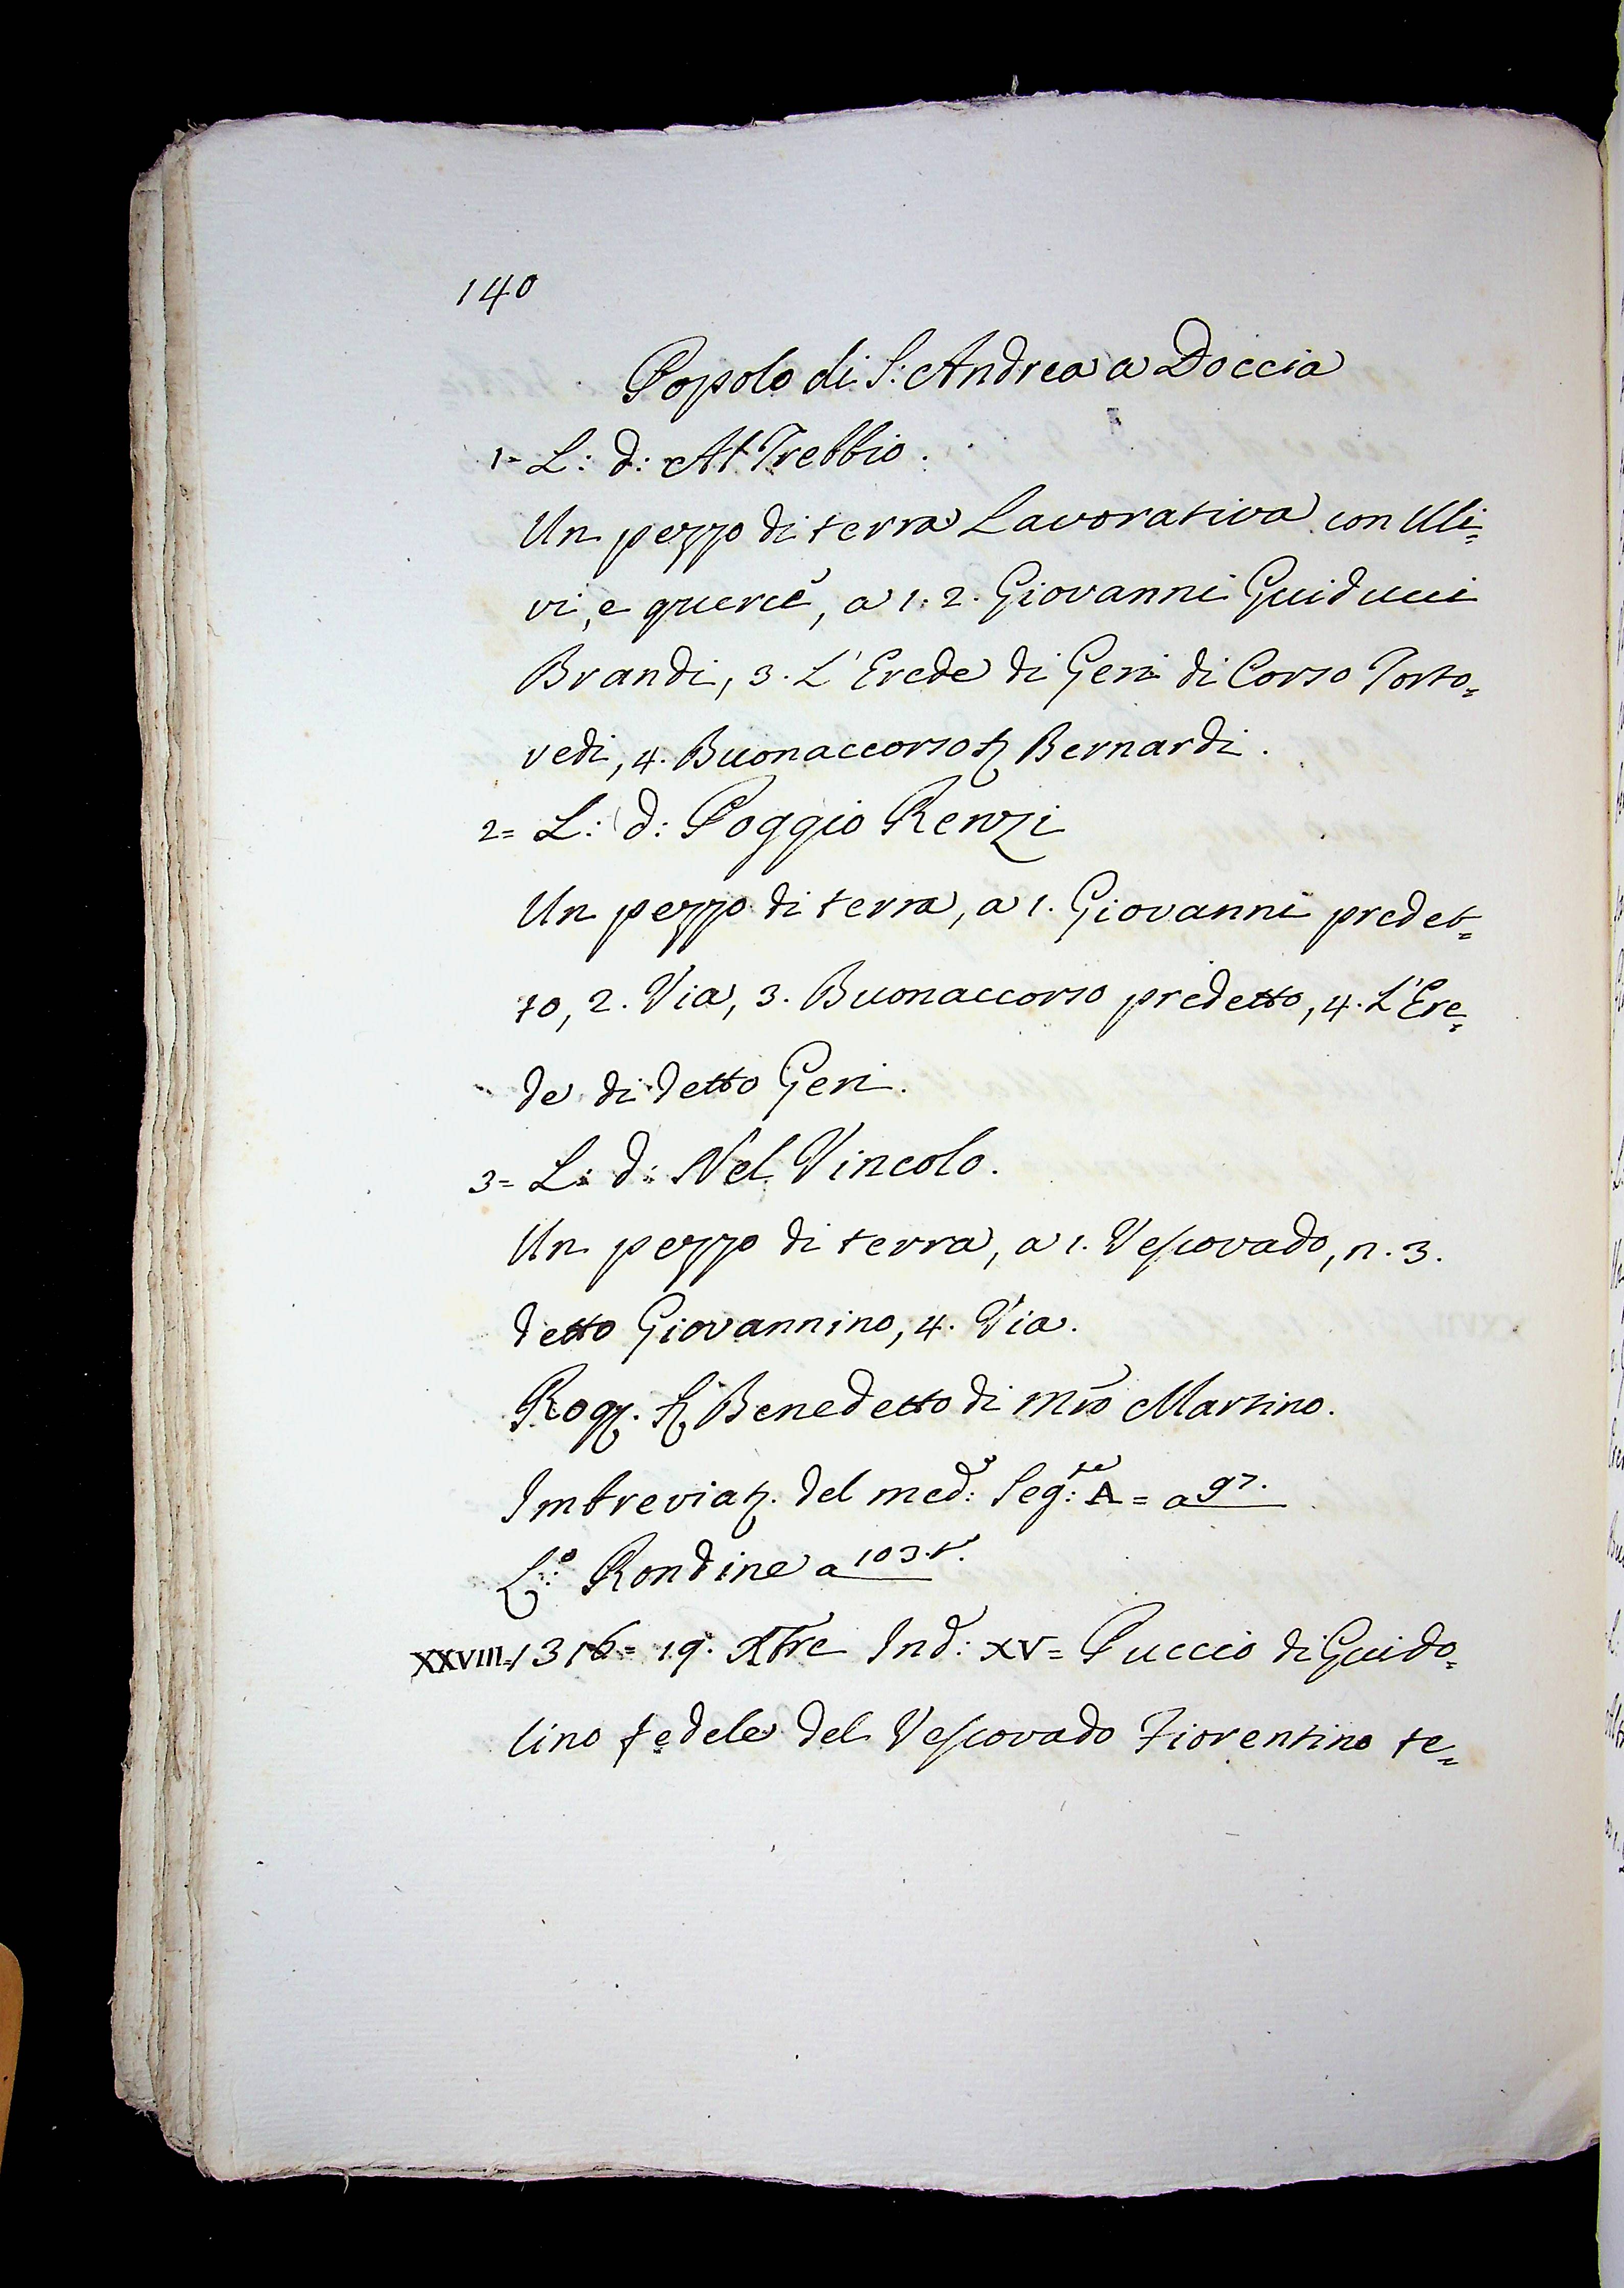 140
Popolo di S: Andrea a Doccia
1= L: d: Al Trebbio.
Un pezzo di terra Lavorativa con Uli=
vi, e querce, a 1. 2. Giovanni Guiducci
Brandi, 3. L'Erede di Geri di Corso Torto=
vedi, 4. Buonaccorso Bernardi.
2= L: d: Poggio Renzi
Un pezzo di terra, a 1. Giovanni predet=
to, 2. Via, 3. Buonaccorso predetto, 4. L'Ere=
de di detto Geri.
3= L: d: Nel Vincolo.
Un pezzo di terra, a 1. Vescovado, n. 3.
detto Giovannino, 4. Via.
Rog. Benedetto di Mro Martino.
Imbreviaz. del med:o Seg:te A = a 97.
L:o Rondine a 103. t.
XXVIII= 1316= 19. Xbre Ind: XV= Puccio di Guido=
lino fedele del Vescovado Fiorentino te=